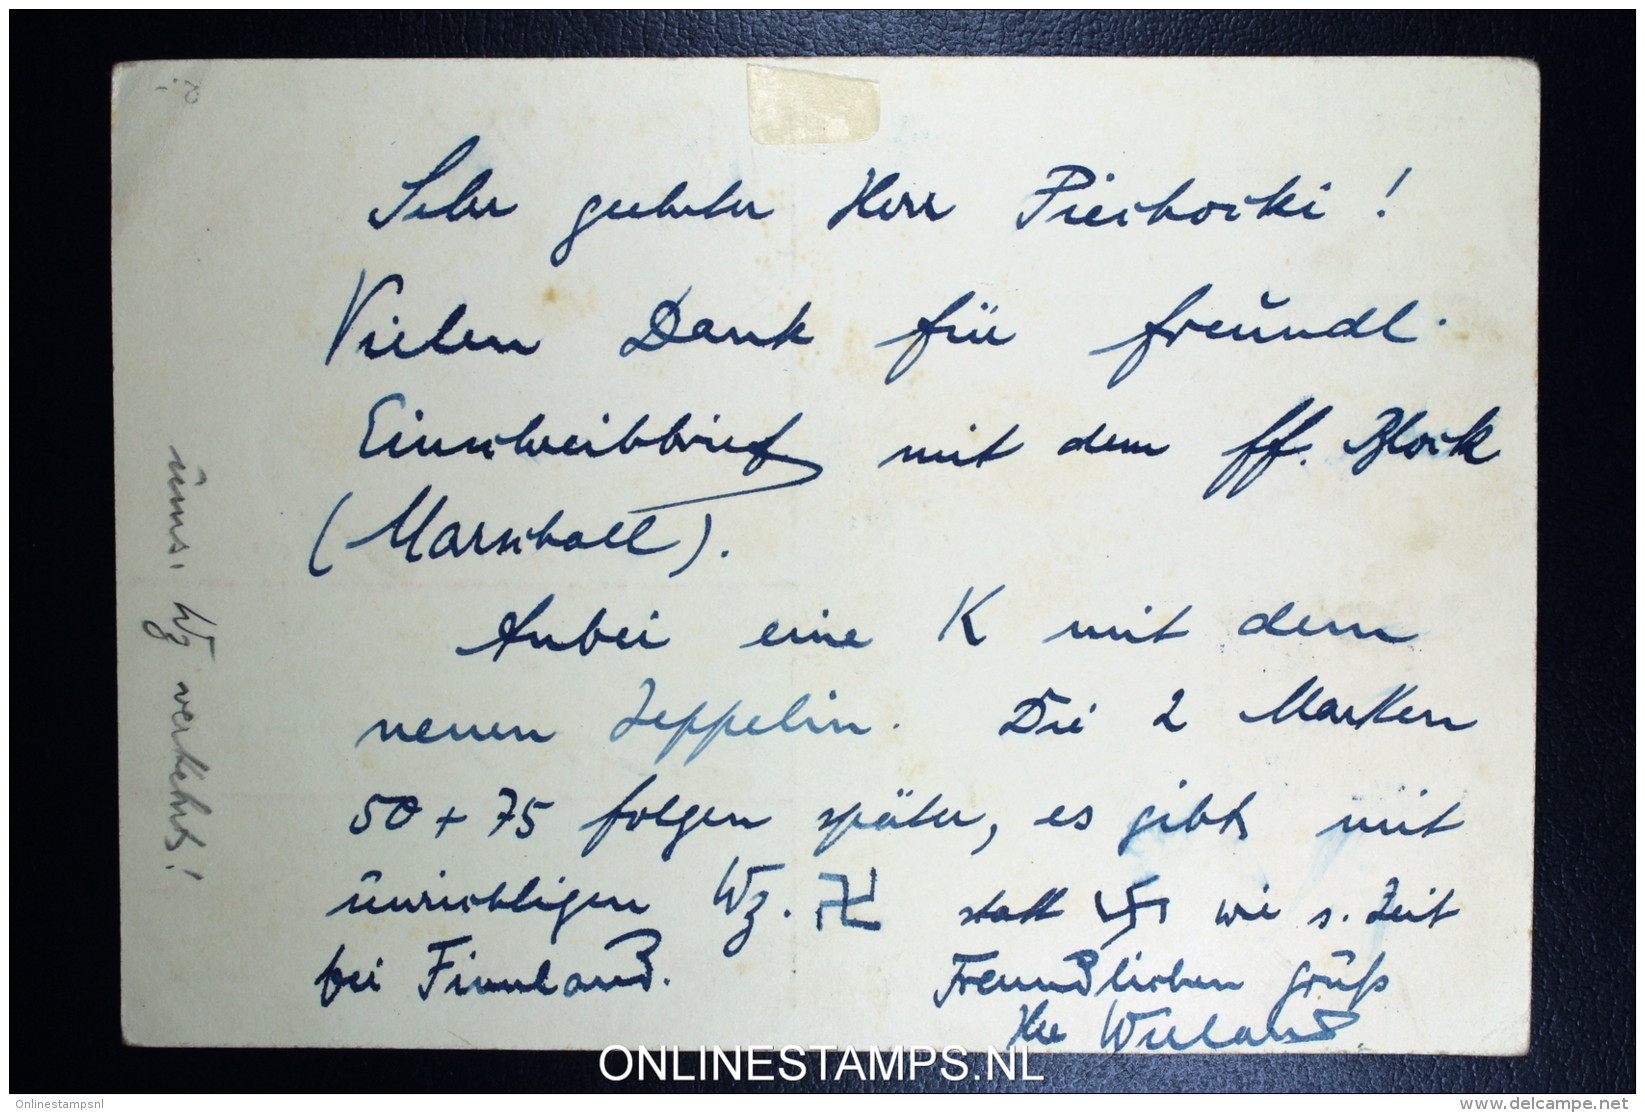 Sehr geehrter Herr Piechocki!
Vielen Dank für freundl.
Einschreibbrief mit dem ff. Block
(Marschall).
Anbei eine K mit dem
neuen Zeppelin. Die 2 Marken
50 + 75 folgen später, es gibt mit
unrichtigen Wz. 卍 statt 卐 wie s. Zeit
bei Finnland. Freundlichen Gruß
Ihr Wieland
Wz verkehrt!
ONLINESTAMPS.NL
Onlinestampsnl
delcampe.net